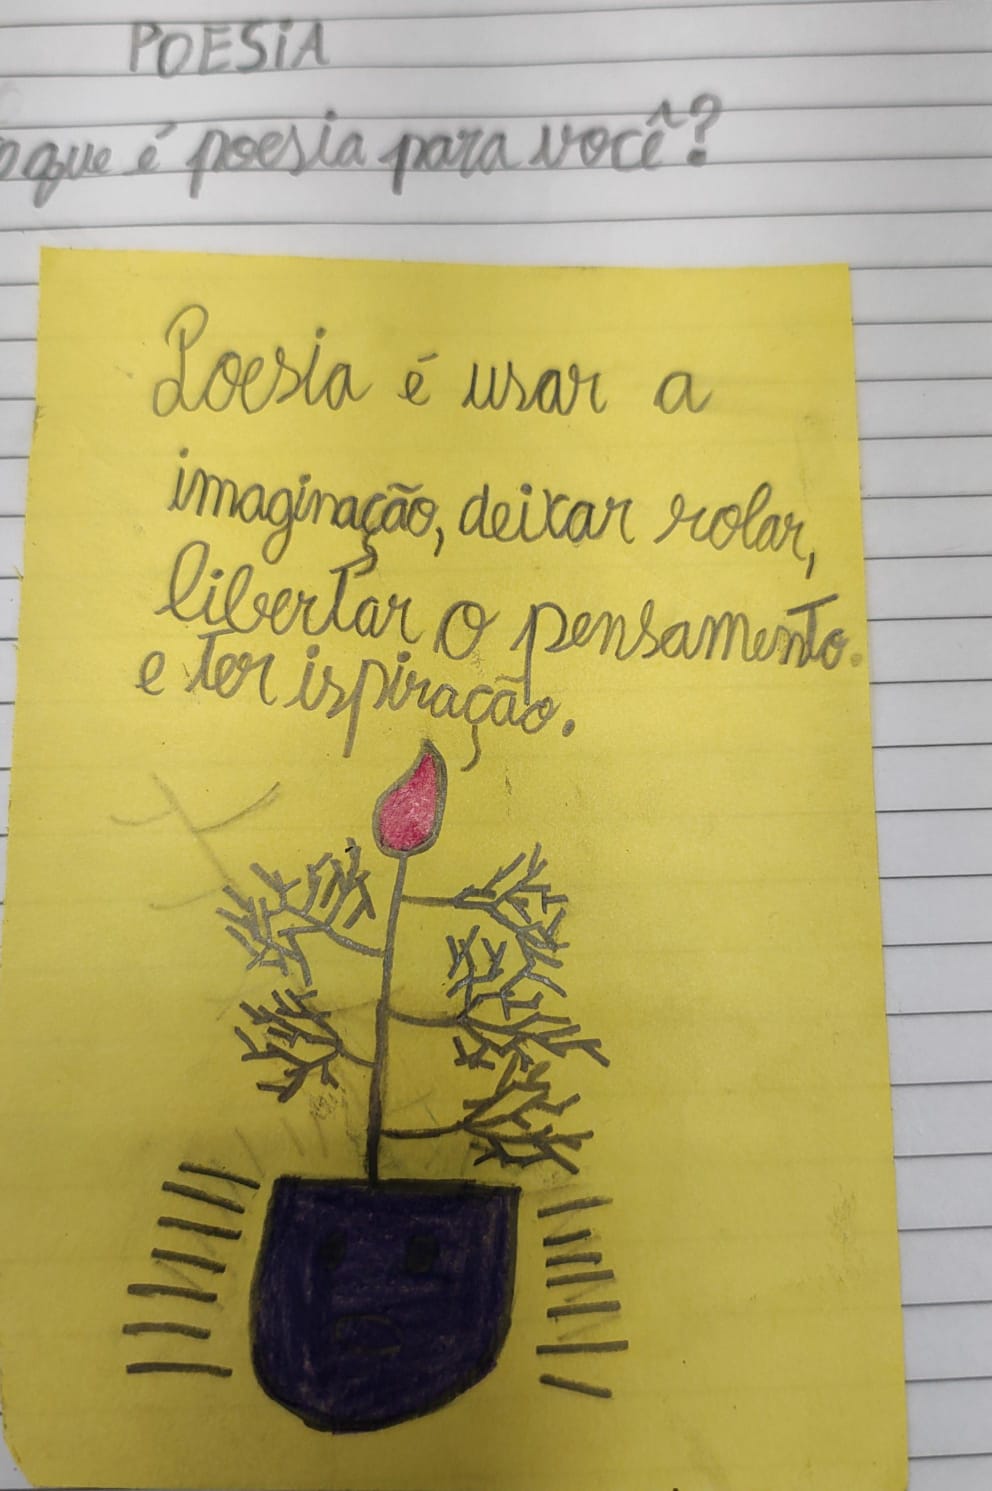 POESIA
o que é poesia para você?
Poesia é usar a
imaginação, deixar rolar,
libertar o pensamento.
e ter ispiração.